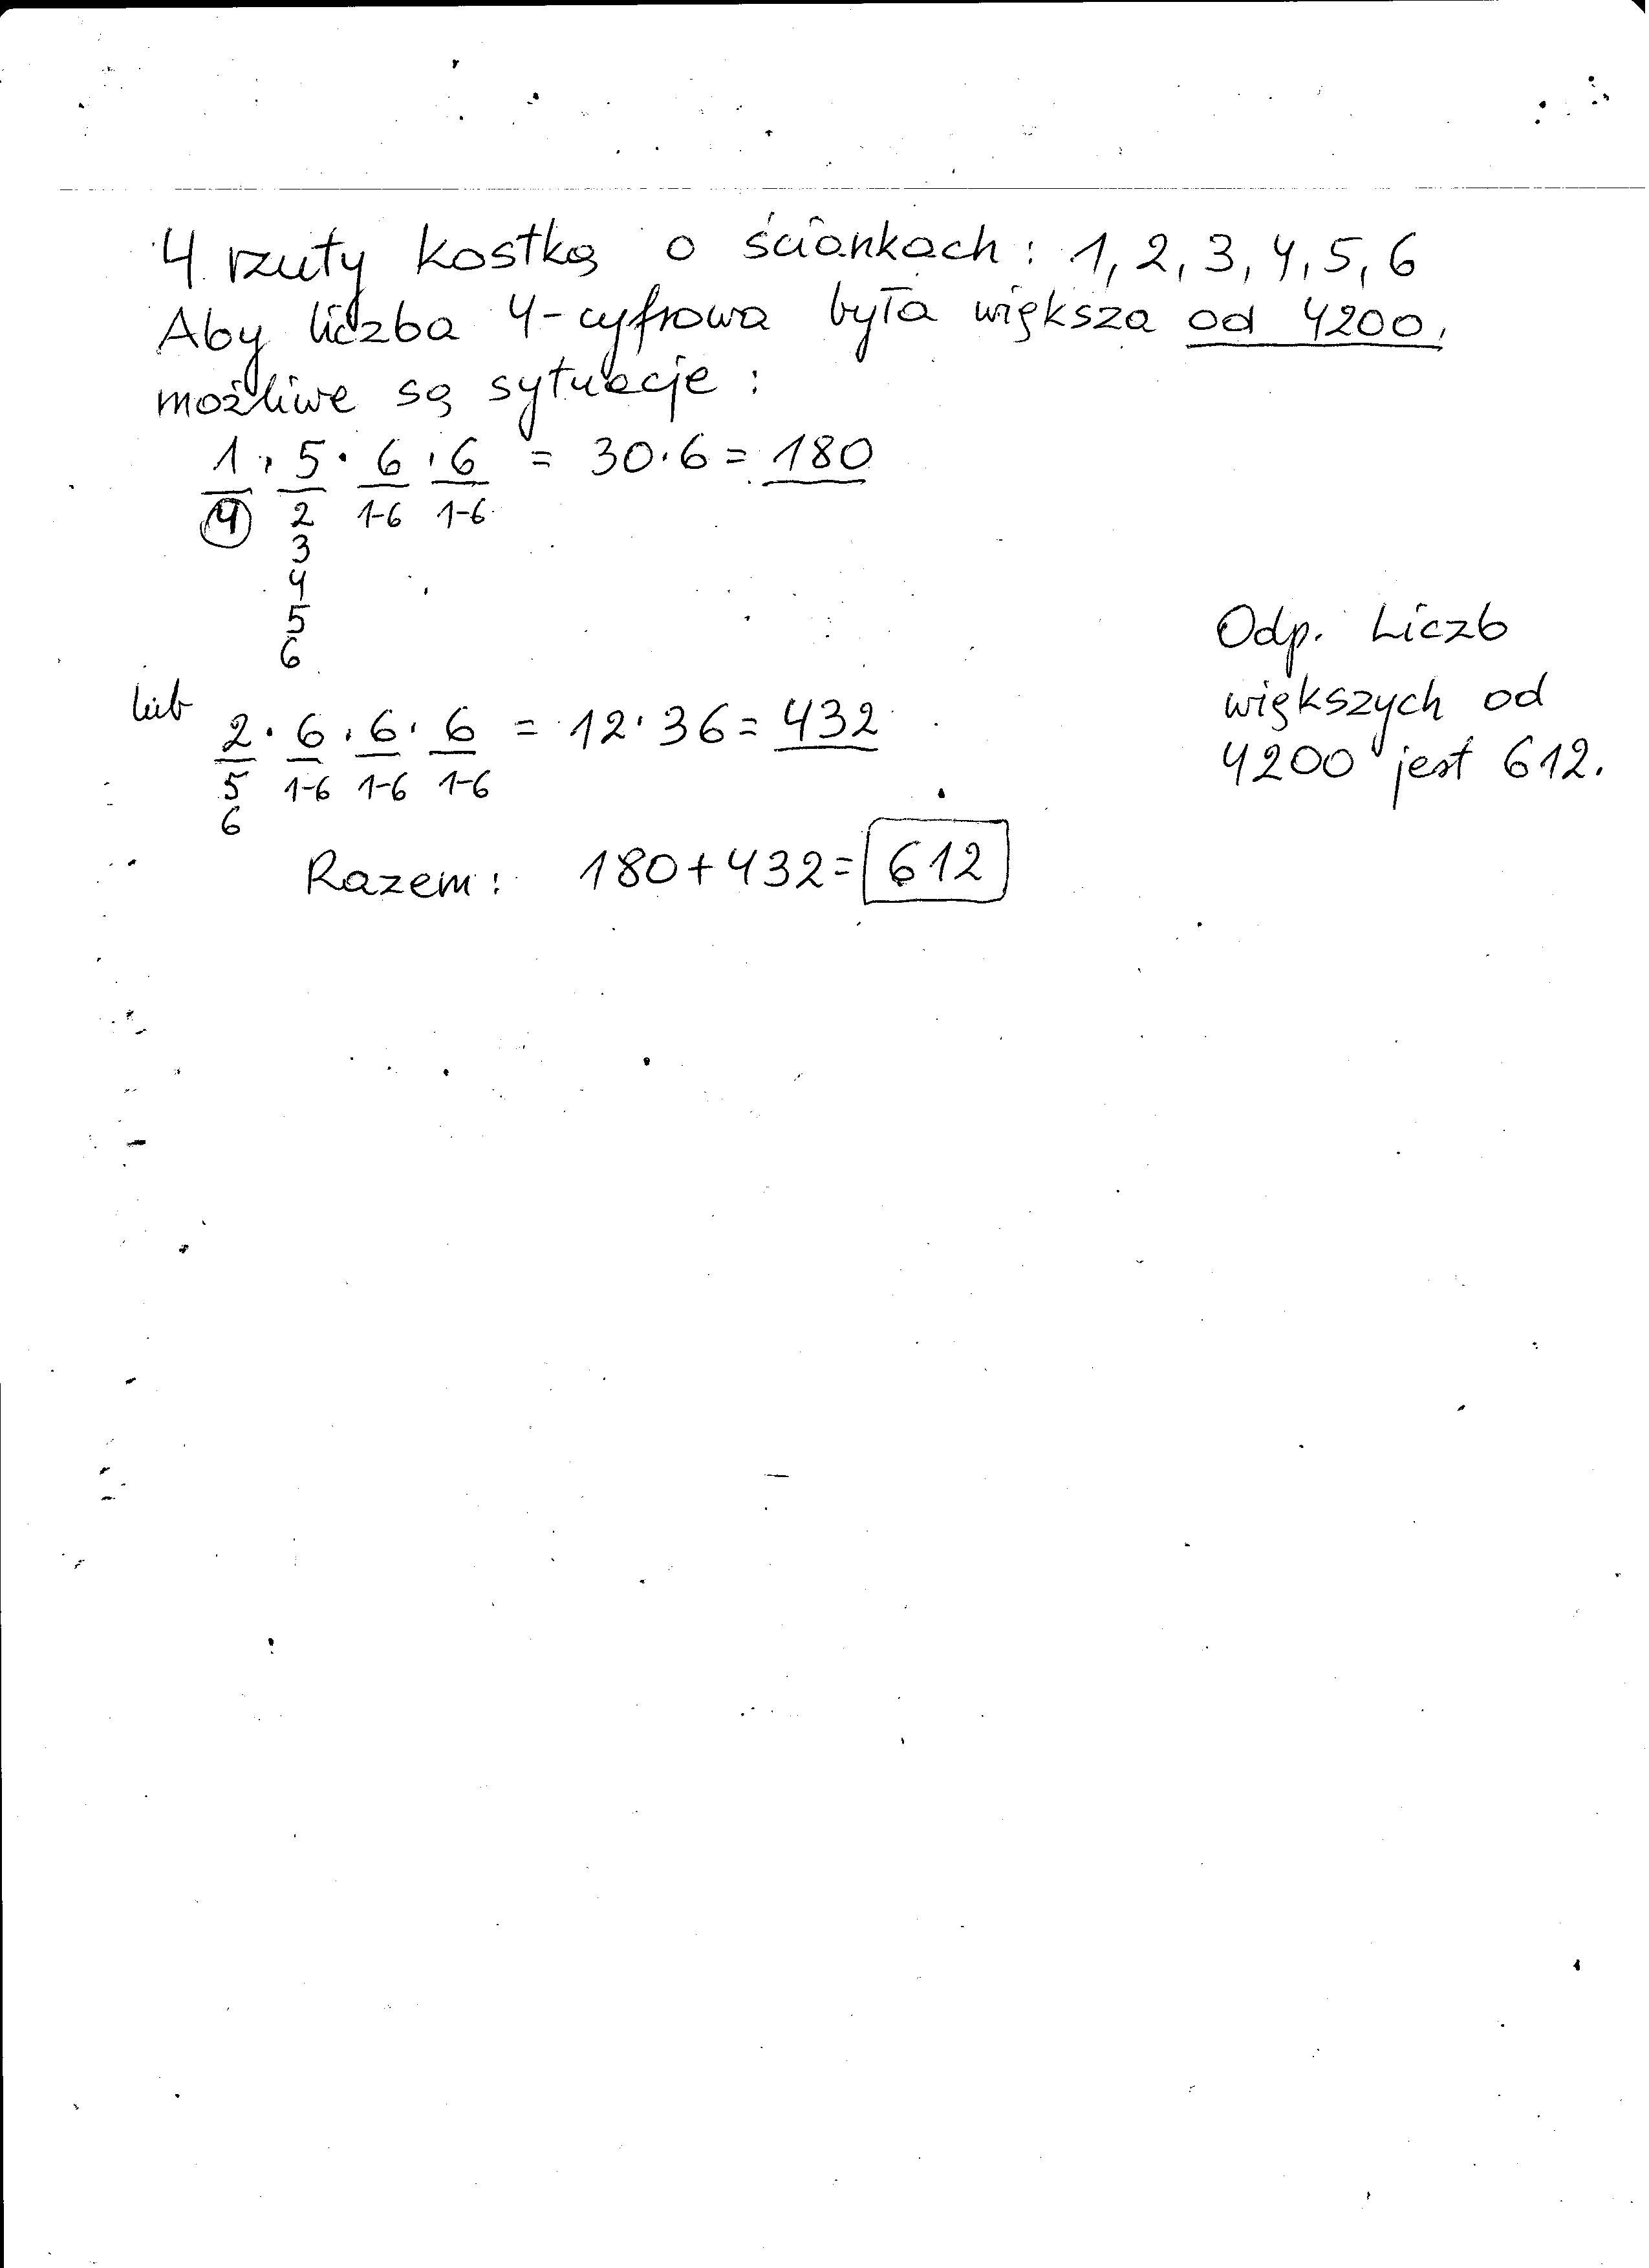 4 rzuty kostką o ściankach: 1, 2, 3, 4, 5, 6
Aby liczba 4-cyfrowa była większa od 4200,
możliwe są sytuacje:
1 · 5 · 6 · 6 = 30 · 6 = 180
4 2 1-6 1-6
3
4
5
6
lub 2 · 6 · 6 · 6 = 12 · 36 = 432
5 1-6 1-6 1-6
6
Razem: 180 + 432 = 612
Odp. Liczb
większych od
4200 jest 612.